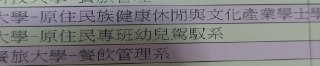 大學-原住民族健康休閒與文化產業學士學
大學-原住民專班幼兒駕馭系
餐旅大學-餐飲管理系